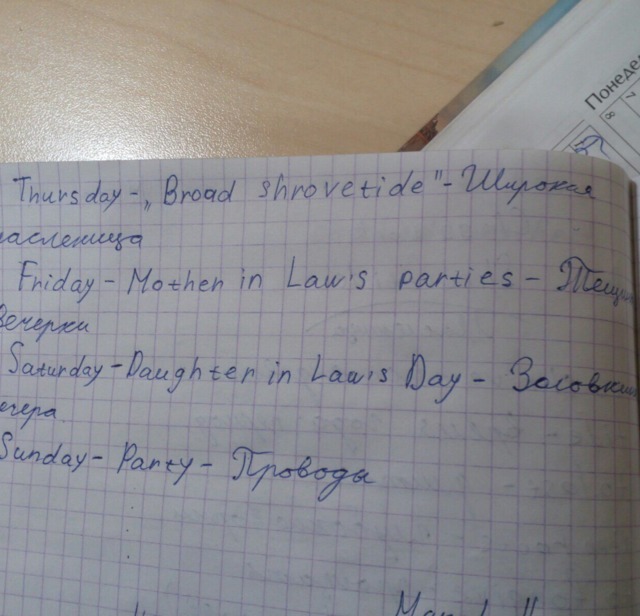 Понедел
7
8
Thursday - „Broad shrovetide" - Широкая
масленица
Friday - Mother in Law's parties - Тещин
Вечерки
Saturday - Daughter in Law's Day - Золовкин
вечера
Sunday - Party - Проводы